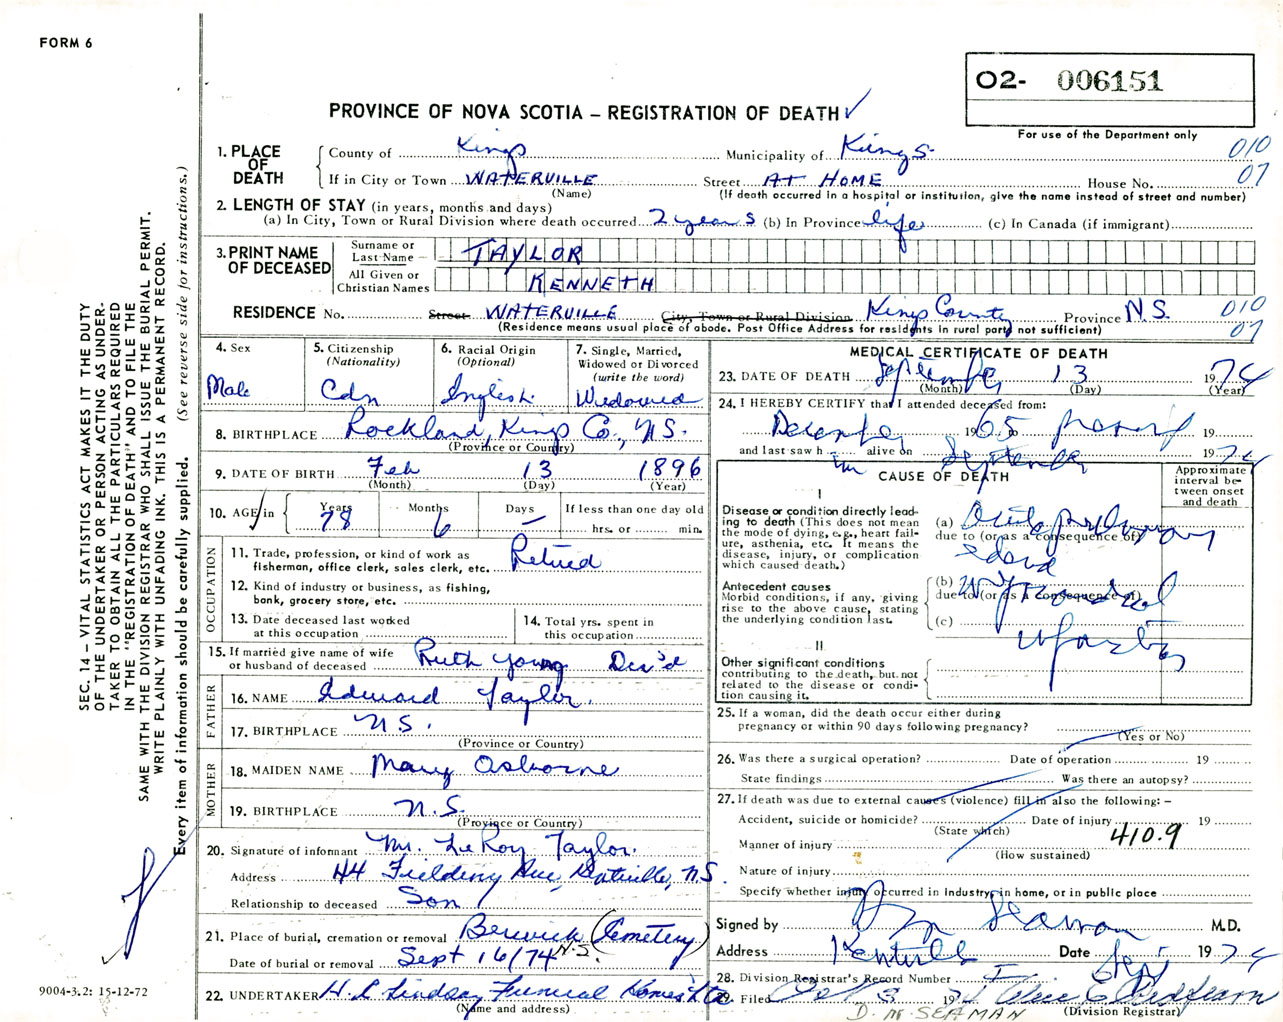 FORM 6
02- 006151
For use of the Department only
PROVINCE OF NOVA SCOTIA – REGISTRATION OF DEATH ✓
1. PLACE OF DEATH
County of Kings Municipality of Kings 010
If in City or Town WATERVILLE Street AT HOME House No. 07
(Name) (If death occurred in a hospital or institution, give the name instead of street and number)
2. LENGTH OF STAY (in years, months and days)
(a) In City, Town or Rural Division where death occurred 2 years (b) In Province life (c) In Canada (if immigrant)
3. PRINT NAME OF DECEASED
Surname or Last Name – TAYLOR
All Given or Christian Names KENNETH
RESIDENCE No. Street WATERVILLE City, Town or Rural Division Kings County Province N.S. 010
(Residence means usual place of abode. Post Office Address for residents in rural parts not sufficient) 07
4. Sex
Male
5. Citizenship
(Nationality)
Cdn
6. Racial Origin
(Optional)
English
7. Single, Married,
Widowed or Divorced
(write the word)
Widowed
8. BIRTHPLACE Rockland, Kings Co., N.S.
(Province or Country)
9. DATE OF BIRTH Feb 13 1896
(Month) (Day) (Year)
10. AGE in
Years Months Days If less than one day old
78 6 – hrs. or min.
OCCUPATION
11. Trade, profession, or kind of work as
fisherman, office clerk, sales clerk, etc. Retired
12. Kind of industry or business, as fishing,
bank, grocery store, etc.
13. Date deceased last worked
at this occupation
14. Total yrs. spent in
this occupation
15. If married give name of wife
or husband of deceased Ruth Young Dec'd
FATHER
16. NAME Edward Taylor.
17. BIRTHPLACE N.S.
(Province or Country)
MOTHER
18. MAIDEN NAME Mary Osborne
19. BIRTHPLACE N.S.
(Province or Country)
20. Signature of informant Mr. LeRoy Taylor.
Address 44 Fielding Ave, N.S.
Relationship to deceased Son
21. Place of burial, cremation or removal Berwick (Cemetery)
N.S.
Date of burial or removal Sept 16/74
22. UNDERTAKER H. L. Lindsay Funeral Home
(Name and address)
MEDICAL CERTIFICATE OF DEATH
23. DATE OF DEATH September 13 1974
(Month) (Day) (Year)
24. I HEREBY CERTIFY that I attended deceased from:
December 1965 to present 19
and last saw him alive on September 1974
CAUSE OF DEATH
Approximate
interval be-
tween onset
and death
I
Disease or condition directly lead-
ing to death (This does not mean
the mode of dying, e.g., heart fail-
ure, asthenia, etc. It means the
disease, injury, or complication
which caused death.)
(a) Acute pulmonary
due to (or as a consequence of)
edema
Antecedent causes
Morbid conditions, if any, giving
rise to the above cause, stating
the underlying condition last.
(b) Myocardial
due to (or as a consequence of)
(c) infarction
II
Other significant conditions
contributing to the death, but not
related to the disease or condi-
tion causing it.
25. If a woman, did the death occur either during
pregnancy or within 90 days following pregnancy?
(Yes or No)
26. Was there a surgical operation? Date of operation 19
State findings Was there an autopsy?
27. If death was due to external causes (violence) fill in also the following: –
Accident, suicide or homicide? Date of injury 19
(State which) 410.9
Manner of injury
(How sustained)
Nature of injury
Specify whether injury occurred in industry, in home, or in public place
Signed by Seaman M.D.
Address Kentville Date Sept 1974
28. Division Registrar's Record Number
29. Filed Oct 3 1974
D. M. SEAMAN (Division Registrar)
SEC. 14 – VITAL STATISTICS ACT MAKES IT THE DUTY
OF THE UNDERTAKER OR PERSON ACTING AS UNDER-
TAKER TO OBTAIN ALL THE PARTICULARS REQUIRED
IN THE "REGISTRATION OF DEATH" AND TO FILE THE
SAME WITH THE DIVISION REGISTRAR WHO SHALL ISSUE THE BURIAL PERMIT.
WRITE PLAINLY WITH UNFADING INK. THIS IS A PERMANENT RECORD.
Every item of information should be carefully supplied. (See reverse side for instructions.)
9004-3.2: 15-12-72